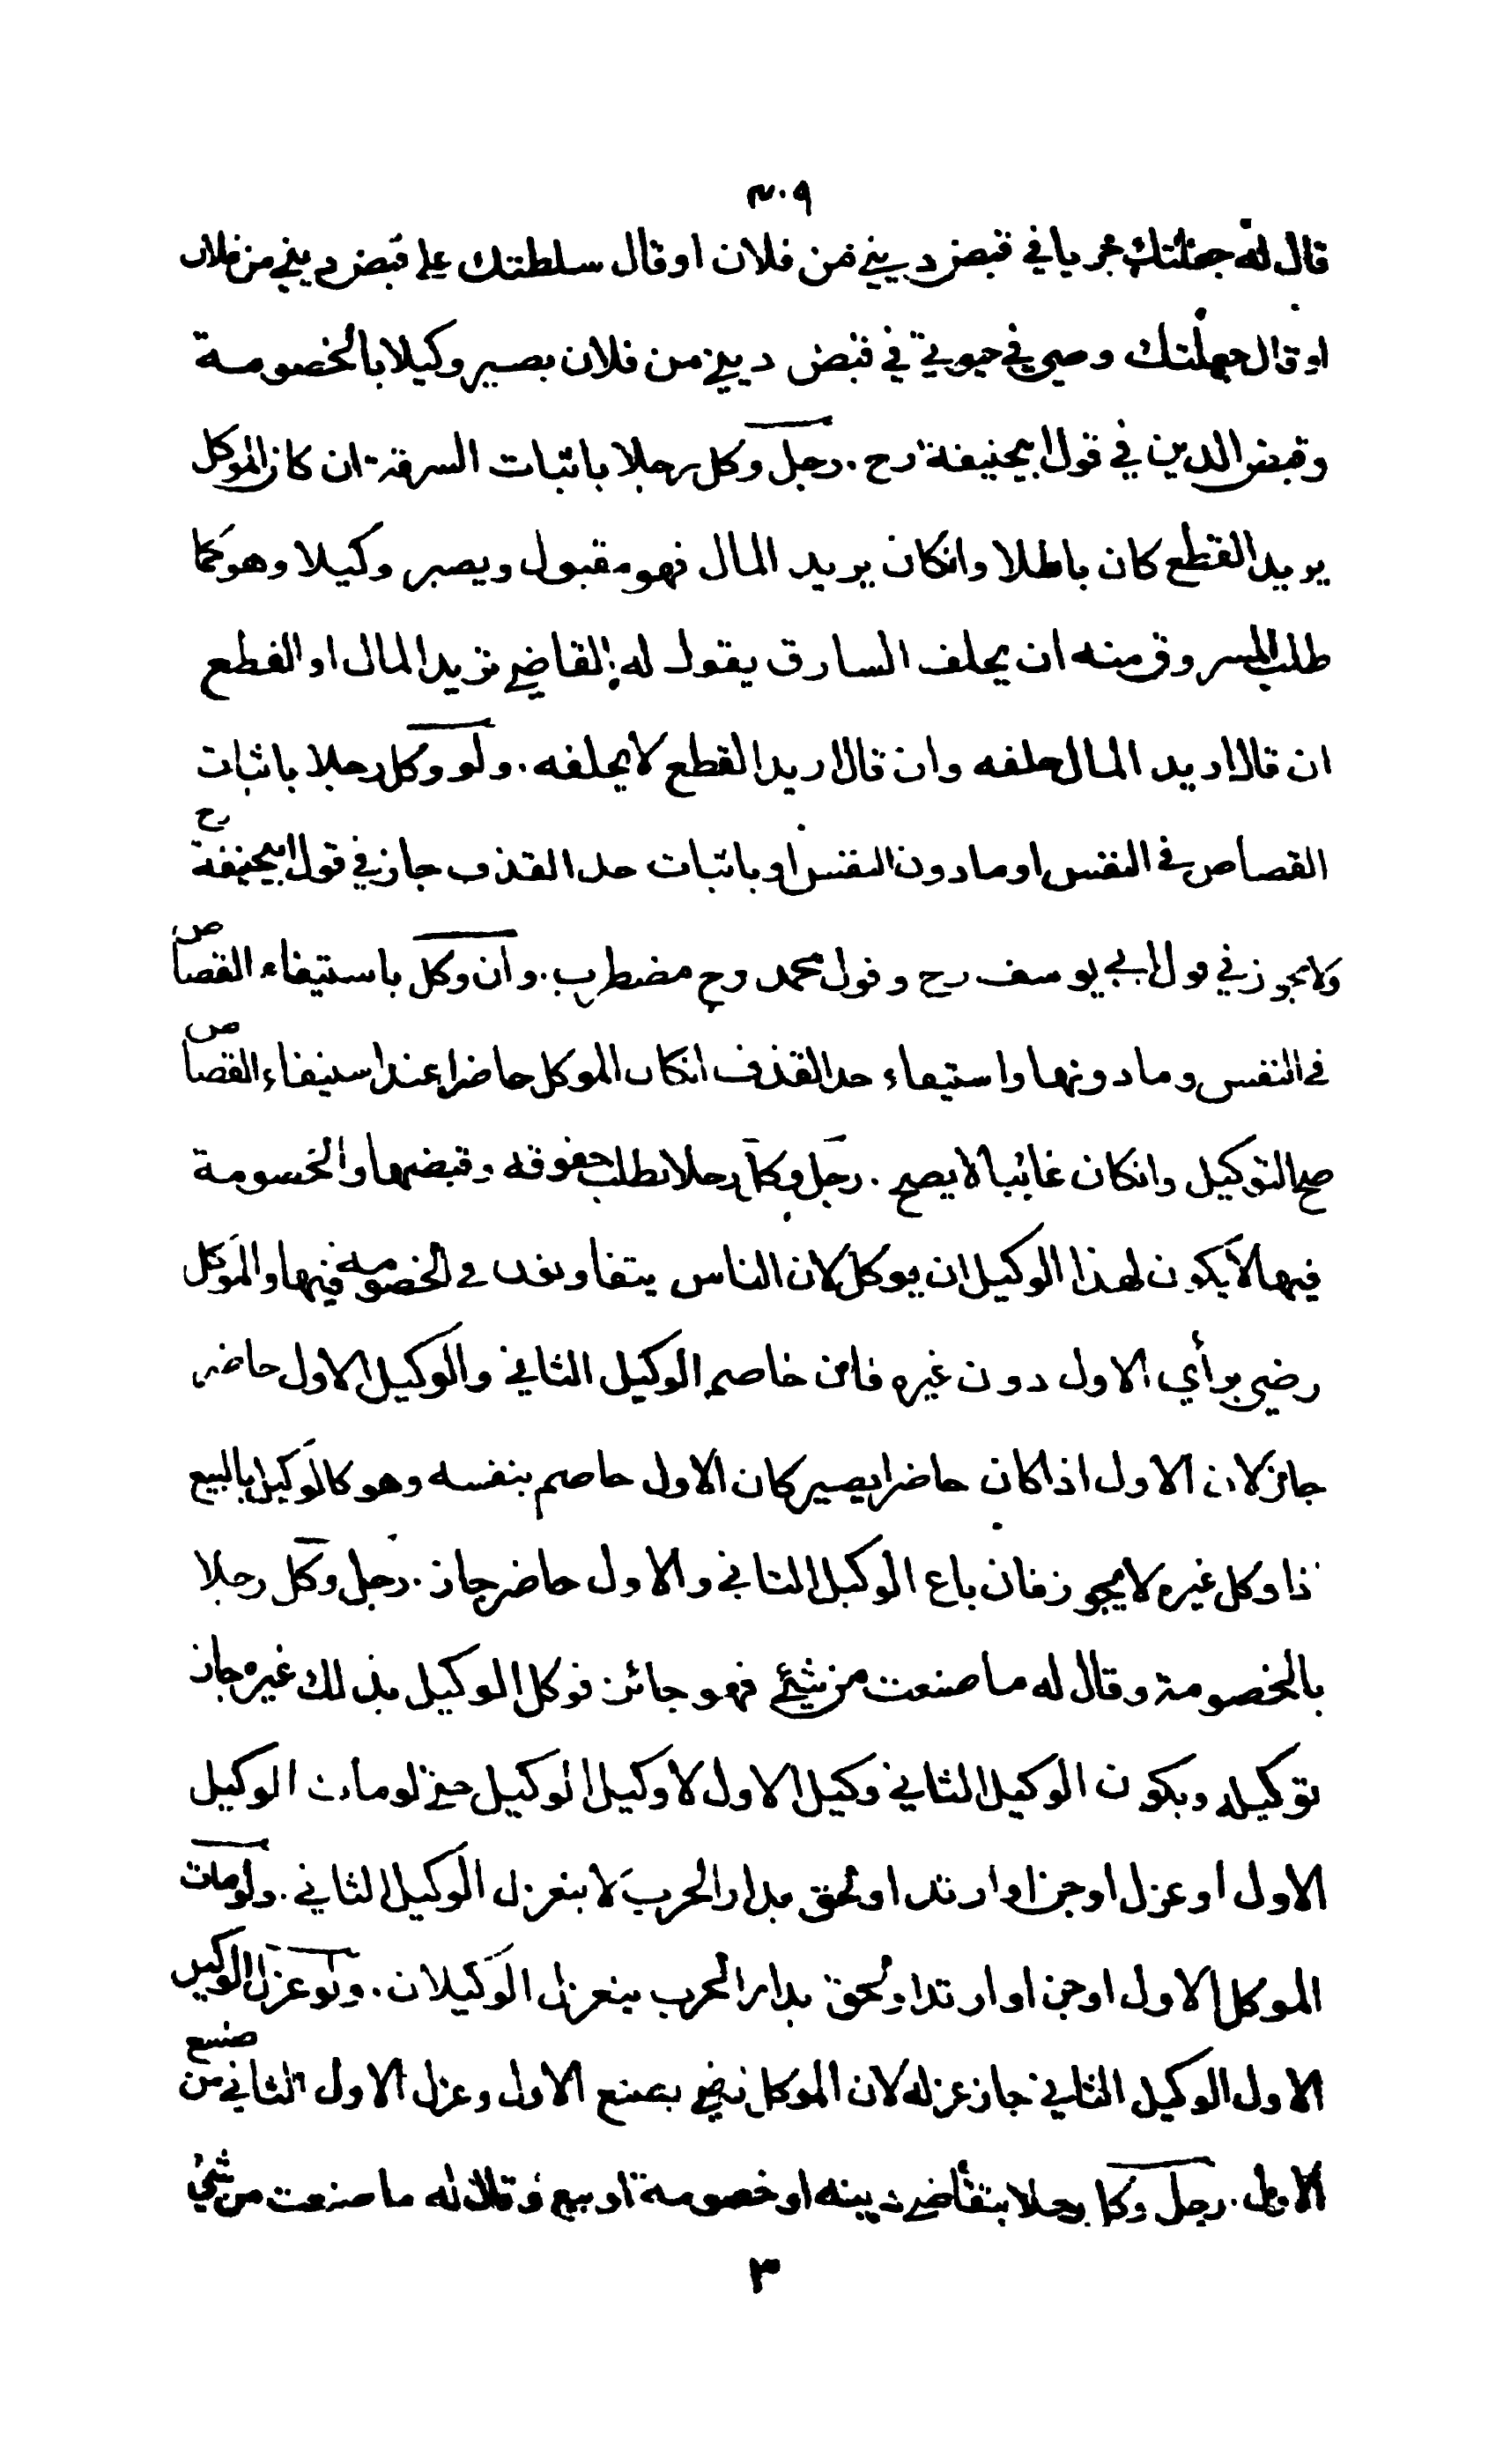 ٣٠٩
قال له جعلتك جريا في قبض ديني من فلان او قال سلطتك على قبض ديني من فلان
او قال جعلتك وصيي في حيوتي في قبض ديني من فلان يصير وكيلا بالخصومة
وقبض الدين في قول ابيحنيفة رح . رجل وكل رجلا باثبات السرقة ان كان الموكل
يريد القطع كان باطلا وانكان يريد المال فهو مقبول ويصير وكيلا وهو كما
طلب المسروق منه ان يحلف السارق يقول له القاضي تريد المال او القطع
ان قال اريد المال حلفه وان قال اريد القطع لا يحلفه . ولو وكل رجلا باثبات
القصاص في النفس او ما دون النفس او باثبات حد القذف جاز في قول ابيحنيفة رح
ولا يجوز في قول ابي يوسف رح وقول محمد رح مضطرب . وان وكل باستيفاء القصاص
في النفس وما دونها واستيفاء حد القذف انكان الموكل حاضرا عند استيفاء القصاص
صح التوكيل وانكان غائبا لا يصح . رجل وكل رجلا بطلب حقوقه وقبضها والخصومة
فيها لا يكون لهذا الوكيل ان يوكل لان الناس يتفاوتون في الخصومة فيها والموكل
رضي برأي الاول دون غيره فان خاصم الوكيل الثاني والوكيل الاول حاضر
جاز لان الاول اذا كان حاضرا يصير كان الاول خاصم بنفسه وهو كالوكيل بالبيع
اذا وكل غيره لا يجوز فان باع الوكيل الثاني والاول حاضر جاز . رجل وكل رجلا
بالخصومة وقال له ما صنعت من شيئ فهو جائز فوكل الوكيل بذلك غيره جاز
توكيله ويكون الوكيل الثاني وكيل الاول لا وكيل الوكيل حتى لو مات الوكيل
الاول او عزل او جن او ارتد او لحق بدار الحرب لا ينعزل الوكيل الثاني . ولو مات
الموكل الاول او جن او ارتد او لحق بدار الحرب ينعزل الوكيلان . ولو عزل الوكيل
الاول الوكيل الثاني جاز عزله لان الموكل رضي بصنع الاول وعزل الاول الثاني من صنيع
الاول . رجل وكل رجلا بتقاضي دينه او خصومة او بيع وقال له ما صنعت من شيئ
٣